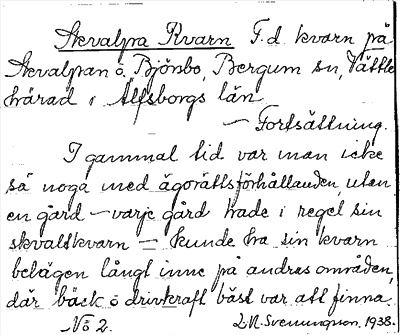 Skvalpa Kvarn F.d. kvarn på
Skvalpan ö. Björsbo, Bergum sn, Vättle
härad i Älfsborgs län
— Fortsättning.
I gammal tid var man icke
så noga med ägorättsförhållanden, utan
en gård — varje gård hade i regel sin
skvaltkvarn — kunde ha sin kvarn
belägen långt inne på andras områden,
där bäck o drivkraft bäst var att finna.
No 2. L.N. Svenungson. 1938.